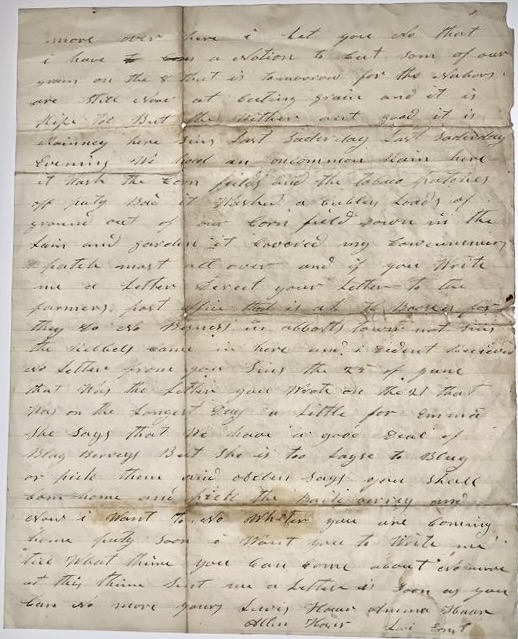 more over here i let you No that
i have to a Notion to Cut som of our
grain on the 8 that is tomorrow for the Nabors
are still Now at Cutting grain and it is
Ripe to But the Wither aint good it is
rainney here Sins Last Saderday Last Saderday
Evening We had an uncommon Rain here
it Wash the Corn fields and the tobaco patches
off puty Bad it Washed a Loads of
ground out of our Corn field Down in the
Lain and gorden it Covered my Cowcummer
patch most all over and if you Write
me a Letter Direct your Letter to the
farmers post office that is at the for
they Do No Busness in abbotts town not Sins
the Rebbels Came in here and i Dident Received
No Letter from you Sins the 25 of june
that Was the Letter you Wrote on the 21 that
Was on the Longest Day a Little for Emma
She Says that We have a good Deal of
Blag Berreys But She is too Layse to Blug
or pick them and Says you Shall
Com home and pick the berrey and
Now i Want to No Whither you are Coming
home puty Soon i Want you to Write me
till What thime you Can Come about No more
at this thime Sent me a Letter is Soon as you
Can No more yours Lewis Haar
Allen Haar